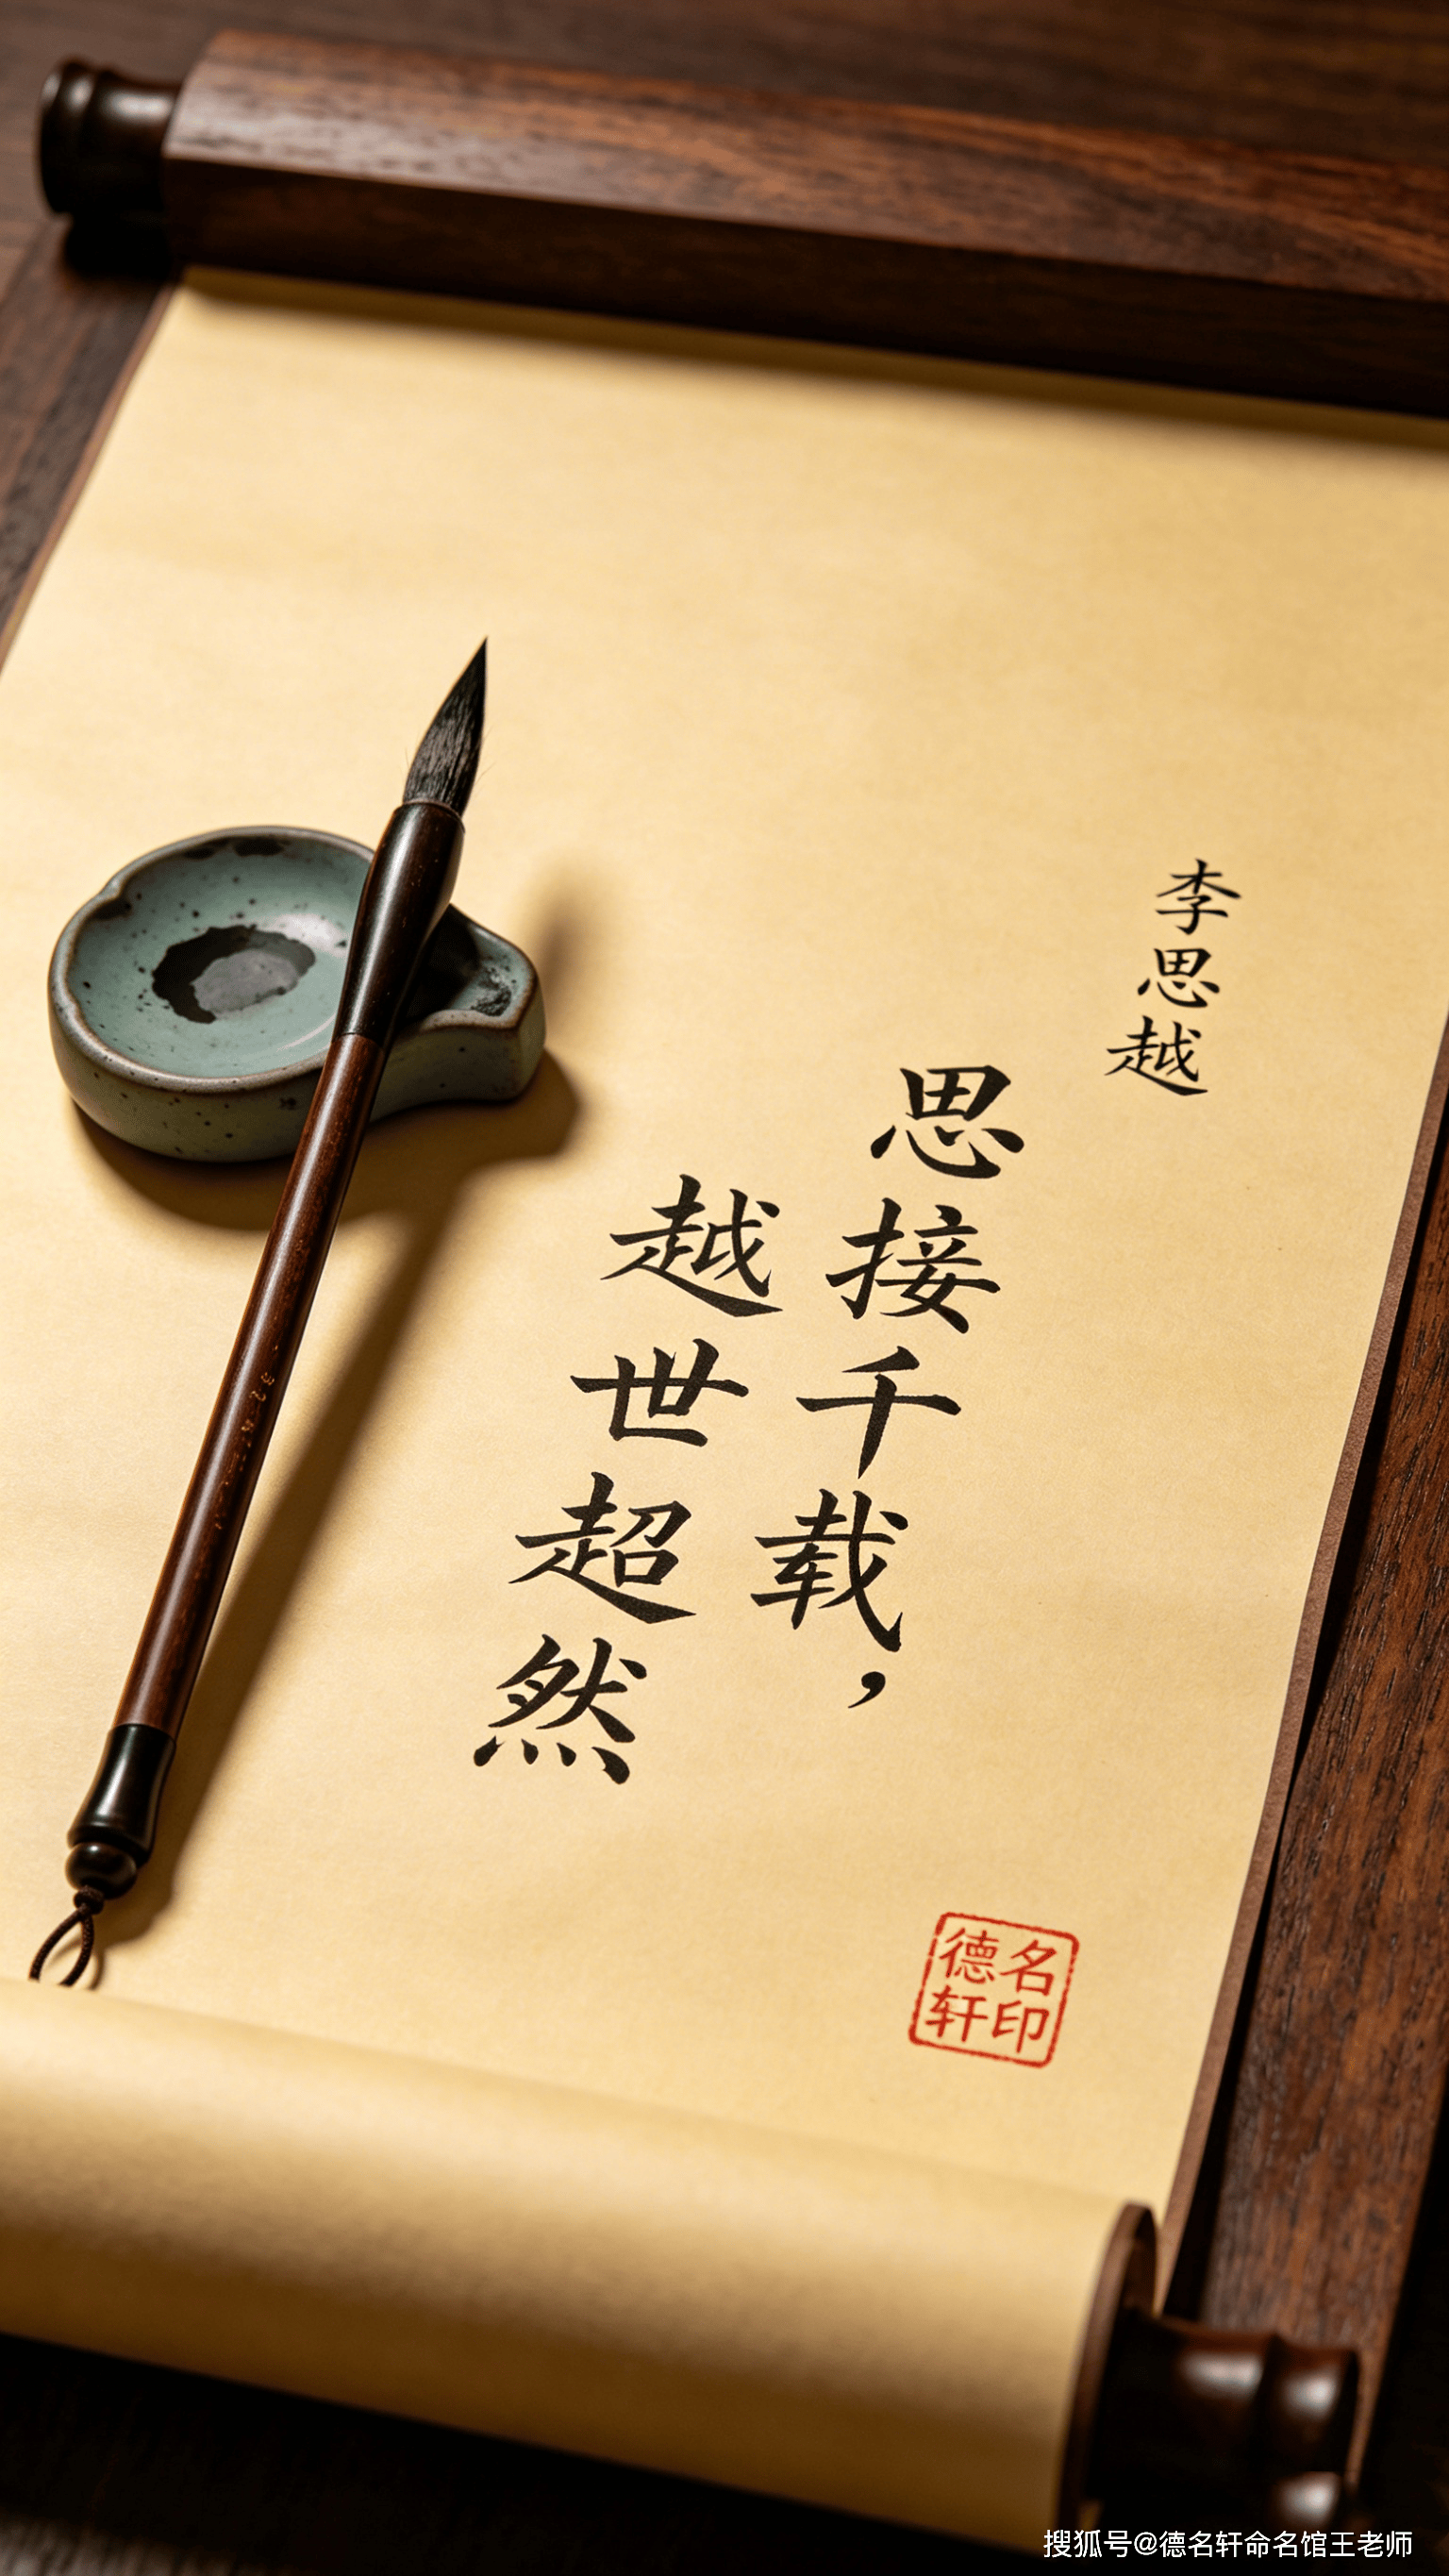 李思越
思接千载，
越世超然
德名
轩印
搜狐号@德名轩命名馆王老师